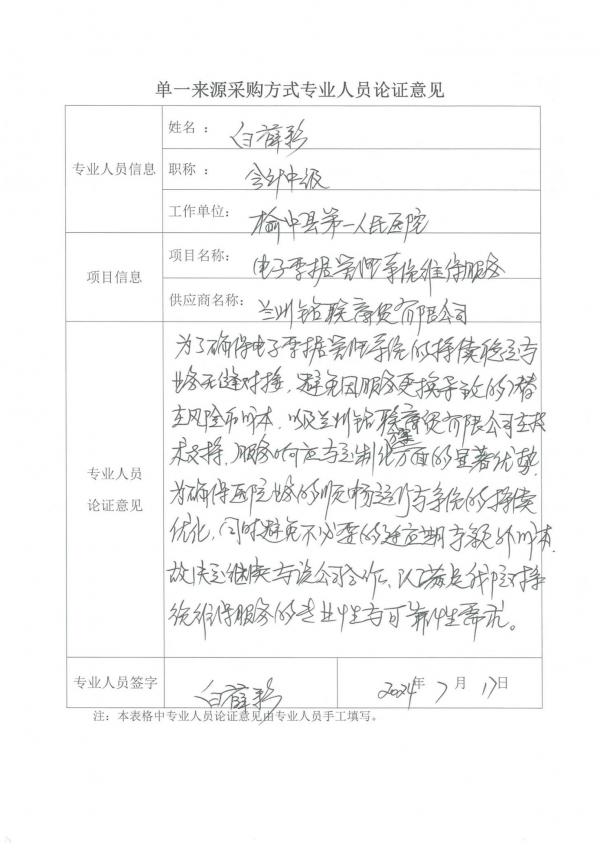 单一来源采购方式专业人员论证意见
专业人员信息
姓名：
白薛彩
职称：
会计中级
工作单位：
榆中县第一人民医院
项目信息
项目名称：
电子票据管理系统维保服务
供应商名称：
兰州铭联商贸有限公司
专业人员
论证意见
为了确保电子票据管理系统的持续稳定与
业务无缝对接，避免因服务更换导致的潜
在风险和成本，以及兰州铭联商贸有限公司在技
术支持、服务响应与定制化方面的显著优势，
为确保医院业务的顺畅运行与系统的持续
优化，同时避免不必要的适应期与额外成本，
故决定继续与该公司合作，以满足我院对系
统维保服务的专业性与可靠性需求。
专业人员签字
白薛彩
2024年7月17日
注：本表格中专业人员论证意见由专业人员手工填写。